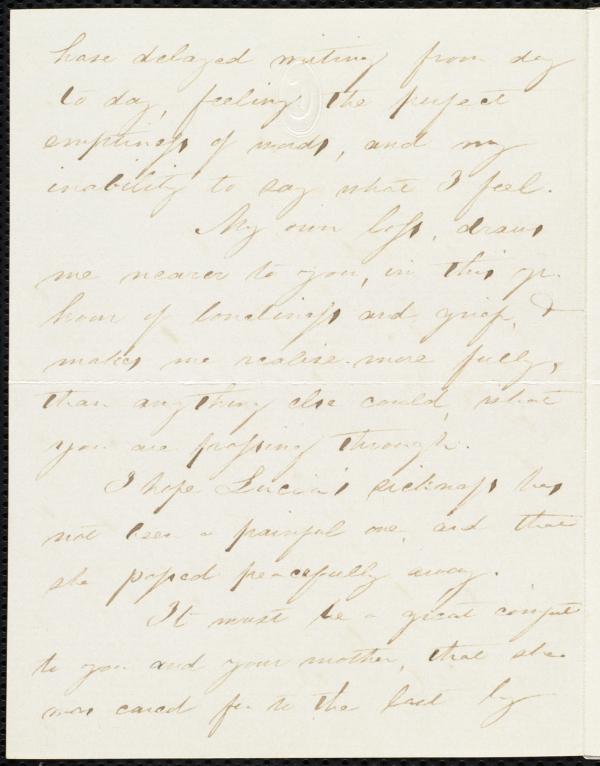 have delayed writing from day
to day, feeling the perfect
emptiness of words, and my
inability to say what I feel.
My own loss, draws
me nearer to you, in this yr.
hour of loneliness and grief, &
makes me realise more fully,
than anything else could, what
you are passing through.
I hope Lucia's sickness has
not been a painful one, and that
she passed peacefully away.
It must be a great comfort
to you and your mother, that she
was cared for to the last by